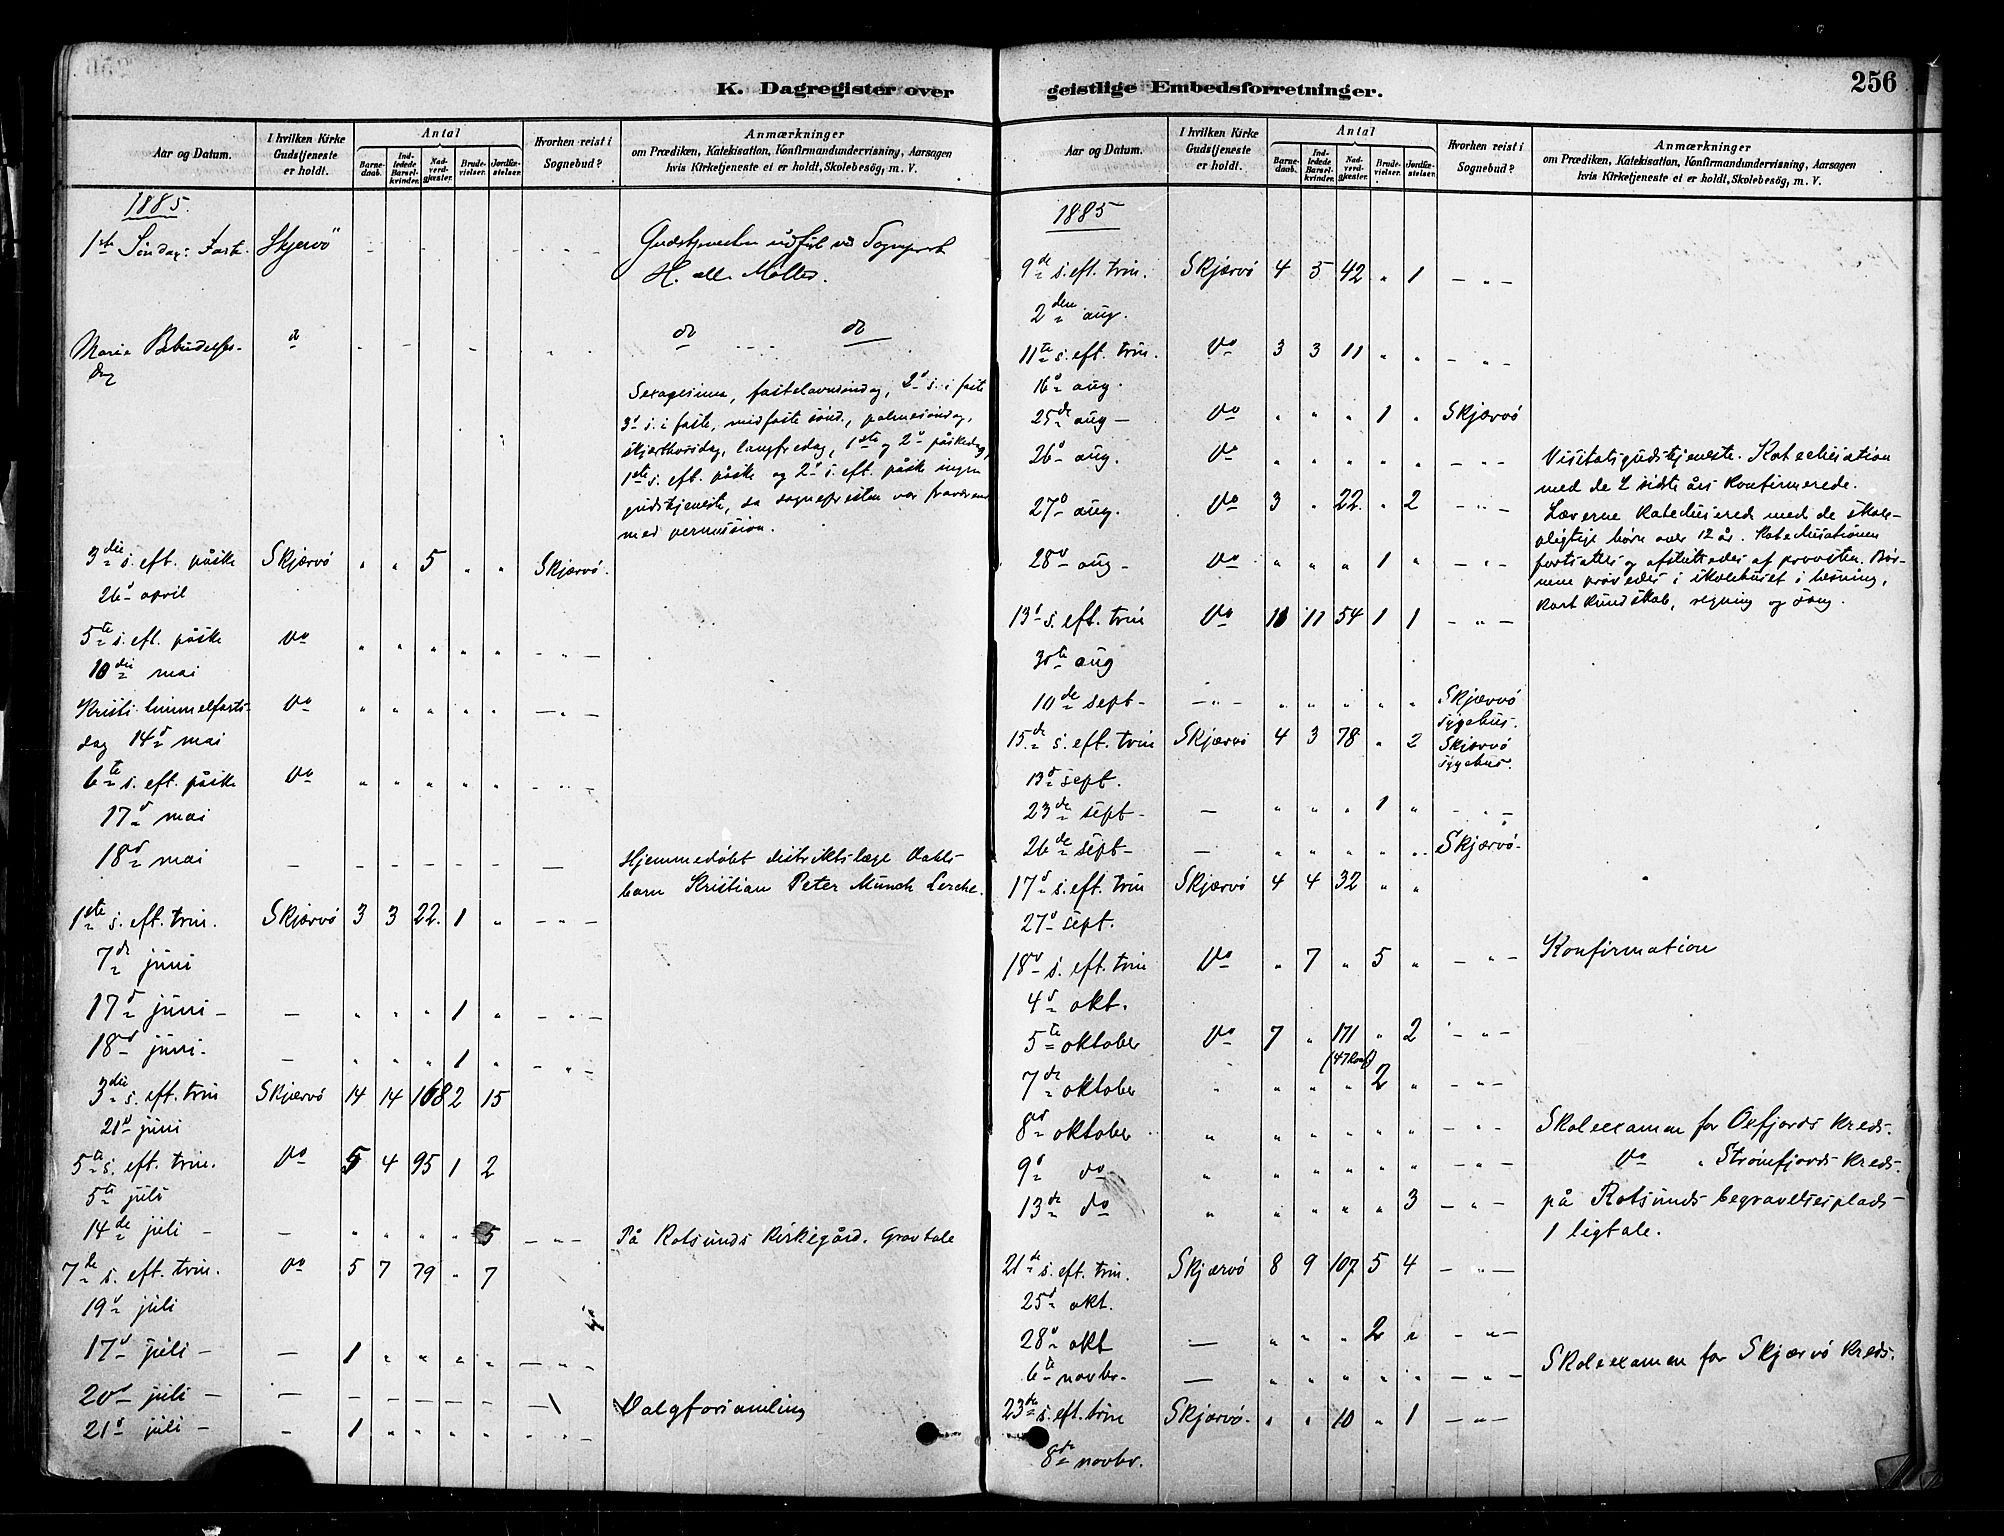 K. Dagregister over geistlige Embedsforretninger. 256
Aar og Datum. I hvilken Kirke Gudstjeneste er holdt. Antal Barnedaab. Indledede Barselkvinder. Nadverdgjester. Brudevielser. Jordfæstelser. Hvorhen reist i Sognebud? Anmærkninger om Prædiken, Katekisation, Konfirmandundervisning, Aarsagen hvis Kirketjeneste ei er holdt, Skolebesög, m. V.
1885.
1ste Søndag i Faste. Skjervö
Gudstjenesten
Maria Bebudelses-
dag do do do
Sexagesima, fastelavnssöndag, 2d s. i faste
3d s. i faste, midfaste sönd., palmesöndag,
skjærthorsdag, langfredag, 1ste og 2d påskedag,
1ste s. eft. påske og 2d s. eft. påske ingen
gudstjeneste, da sognepresten var fraværende
med permission.
3die s. eft. påske Skjærvö " " 5 " " Skjærvö.
26d april
5te s. eft. påske Do " " " " " — " —
10die mai
Kristi himmelfarts- Do " " " " " — " —
dag 14d mai
6te s. eft. påske Do " " " " " — " —
17d mai
18d mai — — — — — — —
Hjemmedöbt distriktslæge
barn Kristian Peter Munch Lerche.
1ste s. eft. trin. Skjærvö 3 3 22. 1 " — " —
7de juni
17d juni — — " " " 1 " — " —
18d juni. — " " " 1 " — " —
3die s. eft. trin Skjærvö 14 14 168 2 15
21d juni
5te s. eft. trin. Do 5 4 95 1 2
5te juli
14de juli — " " " " 5 — " — På Rotsunds Kirkegård. Gravtale
7de s. eft. trin. Do 5 7 79 " 7
19d juli
17d juli — — 1 " " " " — " —
20d juli — — — — — — — — Valgforsamling
21d juli — " 1 " " " " — " —
Aar og Datum. I hvilken Kirke Gudstjeneste er holdt. Antal Barnedaab. Indledede Barselkvinder. Nadverdgjester. Brudevielser. Jordfæstelser. Hvorhen reist i Sognebud? Anmærkninger om Prædiken, Katekisation, Konfirmandundervisning, Aarsagen hvis Kirketjeneste ei er holdt, Skolebesög, m. V.
1885
9de s. eft. trin. Skjærvö 4 5 42 " 1 — " —
2den aug.
11te s. eft. trin. Do 3 3 11 " " — " —
16d aug.
25de aug — Do " " " 1 " Skjærvö
26d aug. Do " " " " " — " —
Visitatsgudstjeneste. Katechisation
med de 2 sidste års konfirmerede.
27d aug. Do 3 " 22. " 2 — " —
Lærerne katechiserede med de skole-
pligtige börn over 12 år. Katechisationen
28d aug — Do " " " 1 " — " —
fortsattes og afsluttedes af provsten. Bör-
nene prövedes i skolehuset i læsning,
kort kundskab, regning og sang.
13d s. eft. trin Do 11 11 54 1 1 — " —
30te aug
10de sept — — " — " " " " " Skjærvö
sygehus.
15de s. eft. trin Skjærvö 4 3 78 " 2 Skjærvö
sygehus.
13d sept.
23de sept — — " " " 1 " — " —
26de sept — — " " " " " Skjærvö —
17d s. eft. trin Skjærvö 4 4 32 " "
27d sept.
18d s. eft. trin Do " 7 " 5 " — " — Konfirmation
4d okt.
5te oktober Do 7 " 171 " 2 — " —
(47 konf)
7de oktober " " " " 2 " — " —
8d oktober " " " " " " — " — Skoleexamen for Oxfjords kreds.
9d do " " " " " " — " — Do " Strömfjords kreds.
13de do " " " " " 3 — " — på Rotsunds begravelsesplads —
1 ligtale.
21de s. eft. trin. Skjærvö 8 9 107 5 4 — " —
25d okt.
28d okt — " " " 2 " — " —
6te novbr. — " " " " " — " — Skoleexamen for Skjærvö kreds.
23de s. eft. trin Skjærvö. " " 10 " 1 — " —
8de novbr.